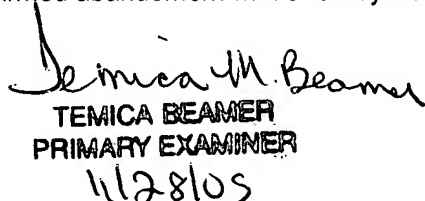 Temica M. Beamer
TEMICA BEAMER
PRIMARY EXAMINER
11/28/05